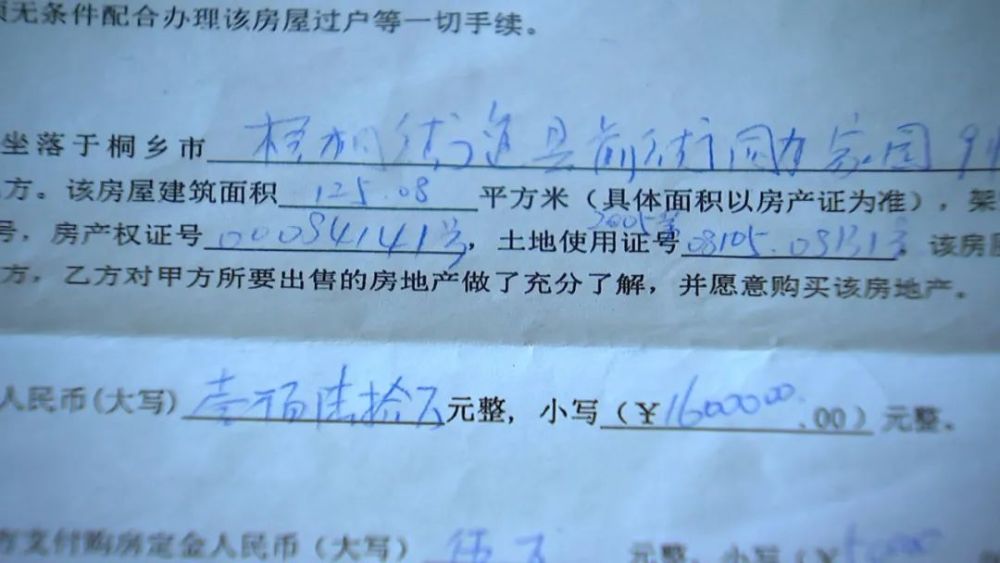 须无条件配合办理该房屋过户等一切手续。
坐落于桐乡市梧桐街道县前街同力家园9
方。该房屋建筑面积125.08平方米（具体面积以房产证为准），架
号，房产权证号00084141号，土地使用证号2005第08105.08131号 该房屋
方，乙方对甲方所要出售的房地产做了充分了解，并愿意购买该房地产。
人民币(大写)壹佰陆拾万元整，小写（¥1600000.00）元整。
方支付购房定金人民币（大写）伍万元整，小写（¥50000